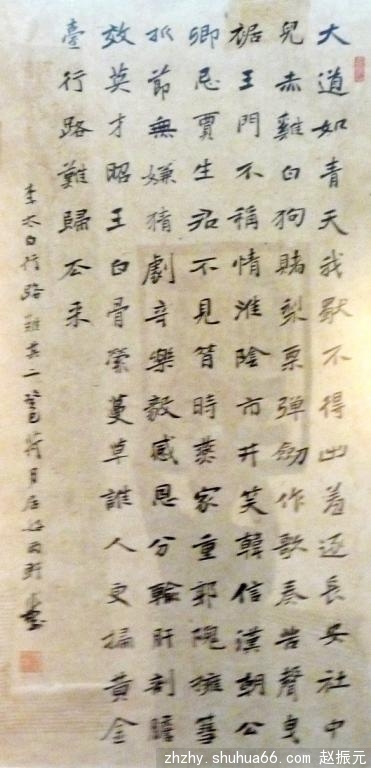 大道如青天我獨不得出羞逐長安社中
兒赤雞白狗賭梨栗彈劍作歌奏苦聲曳
裾王門不稱情淮陰市井笑韓信漢朝公
卿忌賈生君不見昔時燕家重郭隗擁篲
折節無嫌猜劇辛樂毅感恩分輸肝剖膽
效英才昭王白骨縈蔓草誰人更掃黃金
臺行路難歸去來
李太白行路難其二癸巳荷月居好雨軒
zhzhy.shuhua66.com 赵振元